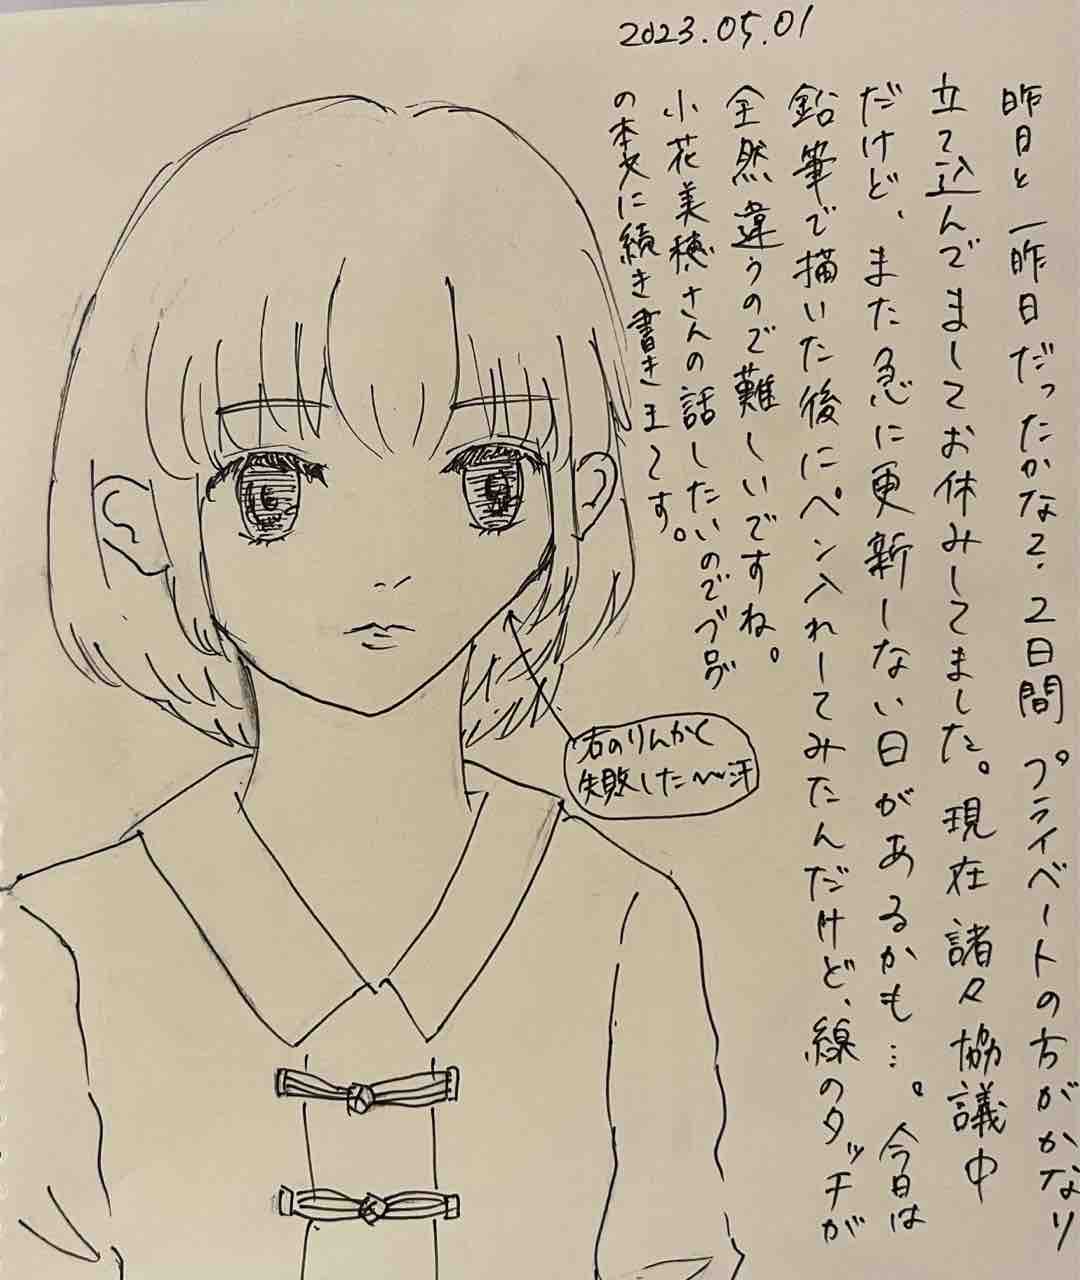 2023.05.01
昨日と一昨日だったかな?2日間プライベートの方がかなり
立て込んでましてお休みしてました。現在諸々協議中
だけど、また急に更新しない日があるかも…。今日は
鉛筆で描いた後にペン入れしてみたんだけど、線のタッチが
全然違うので難しいですね。
小花美穂さんの話したいのでブログ
の本文に続き書きま〜す。
右のりんかく
失敗した〜〜汗